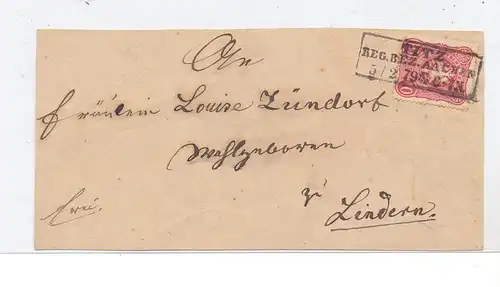 An
TITZ
REG.BEZ.AACHEN
5/2 79
Fräulein Louise Zündorf
Wohlgeboren
zu
Lindern.
frei.